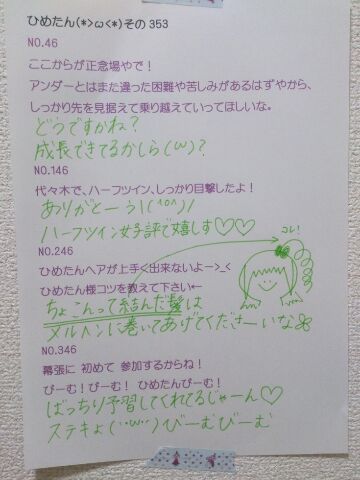 ひめたん(*>ω<*)その 353
NO.46
ここからが正念場やで！
アンダーとはまた違った困難や苦しみがあるはずやから、
しっかり先を見据えて乗り越えていってほしいな。
どうですかね？
成長できてるかしら(ω)？
NO.146
代々木で、ハーフツイン、しっかり目撃したよ！
ありがとーう！(^o^)/
ハーフツイン女子評で嬉しす♡♡
NO.246
コレ！
ひめたんヘアが上手く出来ないよー>_<
ひめたん様コツを教えて下さい←
ちょこんって結んだ髪は
メルヘンに巻いてあげてくださーいな
NO.346
幕張に 初めて 参加するからね！
びーむ！びーむ！ ひめたんびーむ！
ばっちり予習してくれてるじゃーん♡
ステキょ(¨ω¨)びーむびーむ